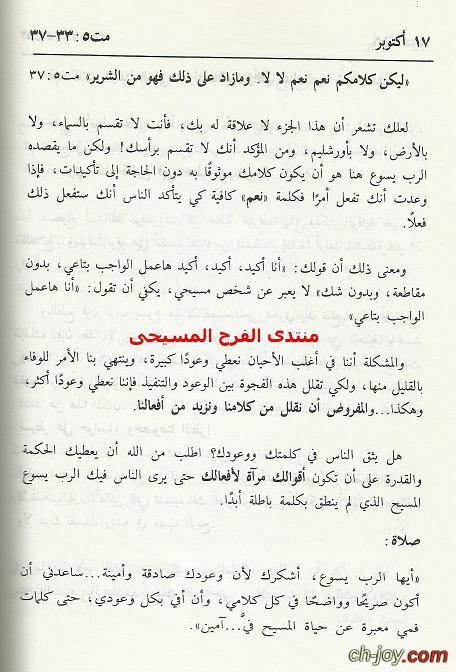 ١٧ أكتوبر مت٥ : ٣٣–٣٧
«ليكن كلامكم نعم نعم لا لا. ومازاد على ذلك فهو من الشرير» مت٥: ٣٧
لعلك تشعر أن هذا الجزء لا علاقة له بك، فأنت لا تقسم بالسماء، ولا
بالأرض، ولا بأورشليم، ومن المؤكد أنك لا تقسم برأسك! ولكن ما يقصده
الرب يسوع هنا هو أن يكون كلامك موثوقًا به دون الحاجة إلى تأكيدات، فإذا
وعدت أنك تفعل أمرًا فكلمة «نعم» كافية كي يتأكد الناس أنك ستفعل ذلك
فعلًا.
ومعنى ذلك أن قولك: «أنا أكيد، أكيد، أكيد هاعمل الواجب بتاعي، بدون
مقاطعة، وبدون شك» لا يعبر عن شخص مسيحي، يكفي أن تقول: «أنا هاعمل
الواجب بتاعي»
منتدى الفرح المسيحى
والمشكلة أننا في أغلب الأحيان نعطي وعودًا كبيرة، وينتهي بنا الأمر للوفاء
بالقليل منها، ولكي تقلل هذه الفجوة بين الوعود والتنفيذ فإننا نعطي وعودًا أكثر
وهكذا...والمفروض أن نقلل من كلامنا ونزيد من أفعالنا.
هل يثق الناس في كلمتك ووعودك؟ اطلب من الله أن يعطيك الحكمة
والقدرة على أن تكون أقوالك مرآة لأفعالك حتى يرى الناس فيك الرب يسوع
المسيح الذي لم ينطق بكلمة باطلة أبدًا.
صلاة:
«أيها الرب يسوع، أشكرك لأن وعودك صادقة وأمينة...ساعدني أن
أكون صريحًا وواضحًا في كل كلامي، وأن أفي بكل وعودي، حتى كلمات
فمي معبرة عن حياة المسيح فيَّ...آمين».
ch-joy.com